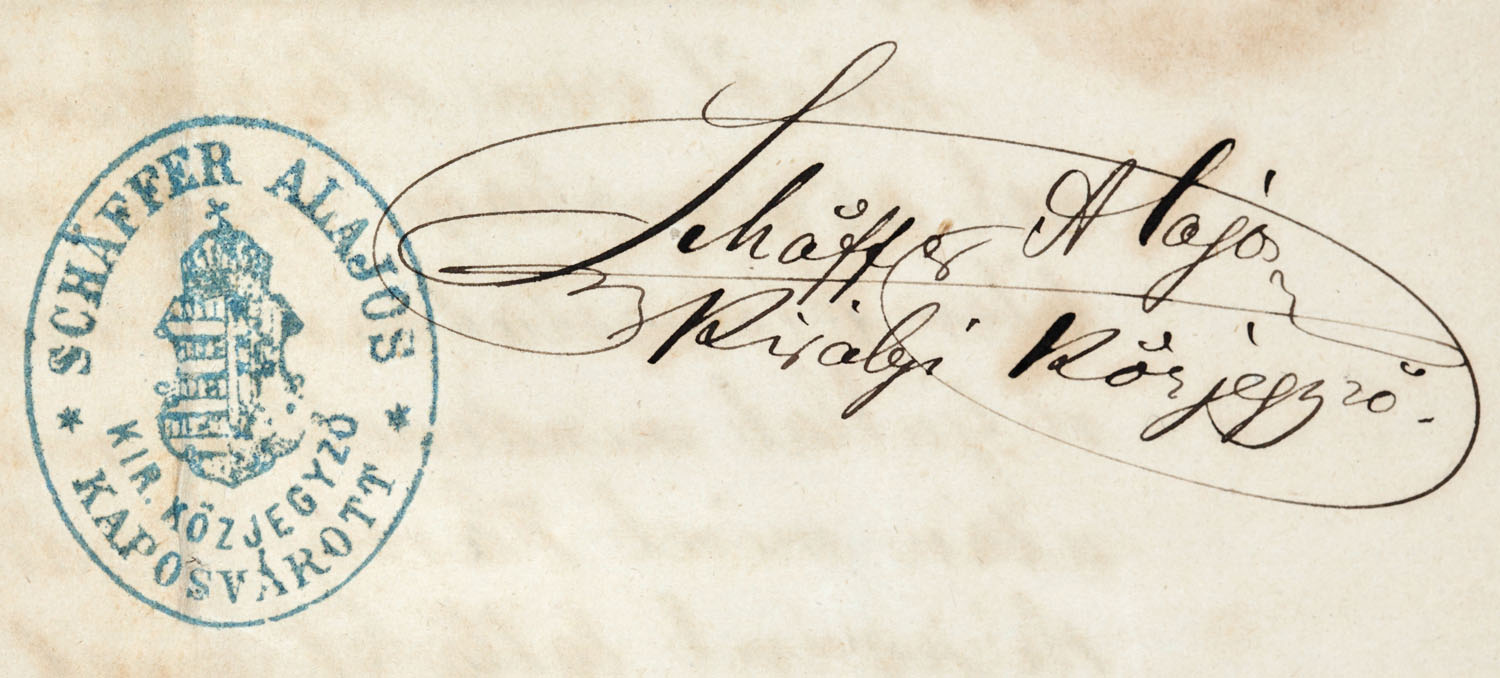 SCHÄFFER ALAJOS
KIR. KÖZJEGYZŐ
* KAPOSVÁROTT *
Schäffer Alajos
Királyi Közjegyző.